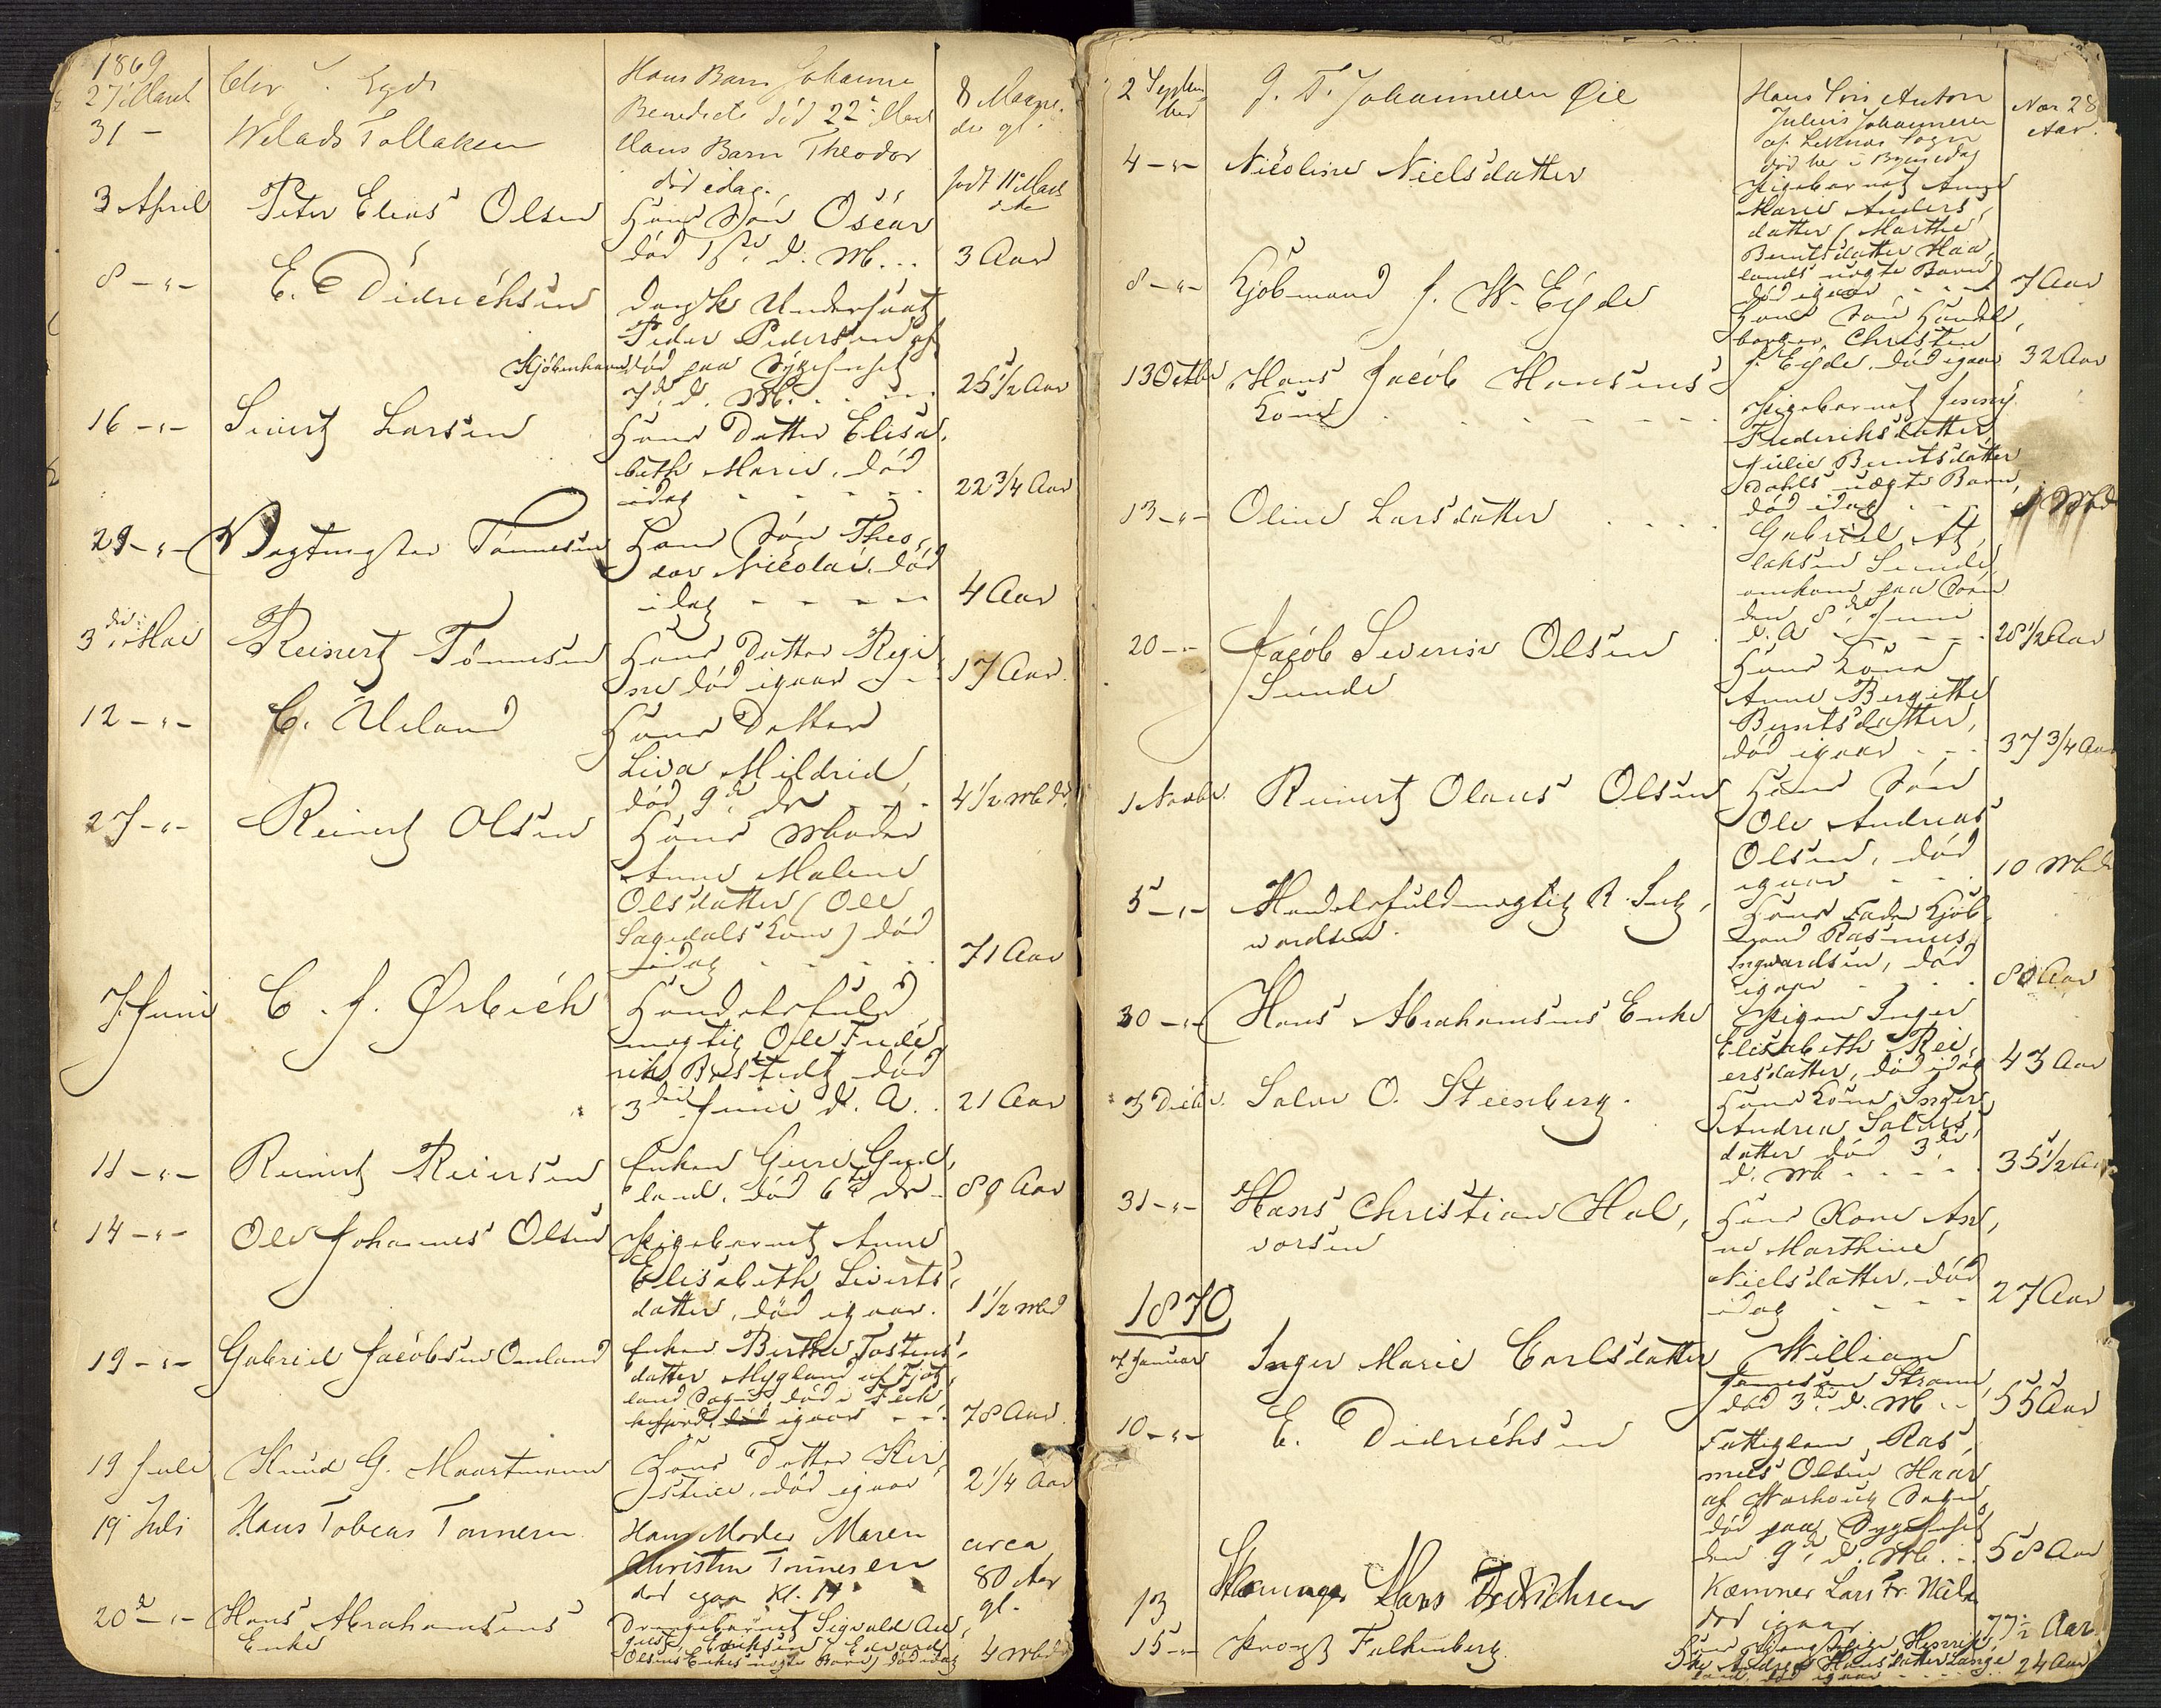 1869
27 Marts Chr. Eyde Hans Barn Johanne
Benedicte død 22de Marts 8 Maane-
der gl.
31 - Velads Tollaksen Hans Barn Theodor
død idag. født 11te Marts
3 April Peter Elias Olsen Hans Søn Oscar
død 1ste d. M. .. 3 Aar
8 -"- E. Didrichsen dansk Undersaat
Peder Pedersen af
Kjøbenhavn, død paa Sygehuset
7de d. M. . . . 25 1/2 Aar
16 -"- Sivert Larsen Hans Datter Elisa-
beth Marie, død
idag - - - - 22 3/4 Aar
29 -"- Vagtmester Tønnesen Hans Søn Theo-
dor Nicolai, død
idag - - - - 4 Aar
3die Mai Reinert Tønnesen Hans Datter Regi-
ne død igaar - - 17 Aar
12 -"- C. Ueland Hans Datter
Liva Mildrid,
død 9de ds - - 4 1/2 Mdr.
27 -"- Reinert Olsen Hans Moder
Anne Malene
Olsdatter (Ole
Sagedals Kone) død
idag - - - - 71 Aar
7 Juni C. J. Ørbech Handelsfuld-
mægtig Ole Frede-
rik Bustedt død
3die Juni d. A. . 21 Aar
11 -"- Reinert Reiersen Enken Guri
land, død 6te ds - 89 Aar
14 -"- Ole Johannes Olsen Pigebarnet Anne
Elisabeth Siverts-
datter, død igaar. 1 1/2 Md
19 -"- Gabriel Jacobsen Omland Enken Berthe Tostens-
datter Mygland af Fjot-
land Sogn, død i Fek-
kefjord, igaar - - 78 Aar
19 Juli Knud G. Maartmann Hans Datter Kir-
stine, død igaar 2 1/4 Aar
19 Juli Hans Tobias Tønnesen Hans Moder Maren
Christin Tønnesen circa
død igaar Kl. 80 Aar
gl.
20de -"- Hans Abrahamsens Drengebarnet Sigvald Au-
Enke gust Eriksen (Edvard
Olsens Enkes uægte Barn) død idag 4 Mdr
2 Septem- J. T. Johannesen Øie Hans Søn Anton Nær 28
ber Julius Johannesen Aar.
af Sogn
død her i Byen idag
4 -"- Nicoline Nielsdatter Pigebarnet Anne
Marie Anders-
datter (Marthe
Berntsdatter Haa-
lands uægte Barn)
død igaar - - - 7 Aar
8 -"- Kjøbmand J. W. Eyde Hans Søn Handels-
borger Christen
J. Eyde, død igaar 32 Aar
13 Octbr Hans Jacob Hansens Pigebarnet Jenny
Kone . - - - - Frederiksdatter,
Julie Berntsdatter
Dahls uægte Barn,
død idag - - 1 Md
13 -"- Oline Larsdatter . . . . Gabriel At-
laksen Sunde,
omkom paa Søen
den 8de Juni
d. A - - - - 28 1/2 Aar
20 -"- Jacob Severin Olsen Hans Kone
Sunde Anne Bergitte
Berntsdatter,
død igaar - - - 37 3/4 Aar
1 Novbr. Reinert Olaus Olsen Hans Søn
Ole Andreas
Olsen, død
igaar - - - 10 Mdr
5 -"- Handelsfuldmægtig R. Ing- Hans Fader Kjøb-
wardsen. mand Rasmus
Ingwardsen, død
igaar - - - 80 Aar
30 -"- Hans Abrahamsens Enke Pigen Inger
Elisabeth Rei-
ersdatter, død idag 43 Aar
3 Decbr. Salve O. Steensberg. Hans Kone Inger
Andrea Salves-
datter død 3die
d. M - - - - 35 1/2 Aar
31 -"- Hans Christian Hal- Hans Kone An-
vorsen ne Marthine
Nielsdatter, død
idag - - - - 27 Aar
1870
7 Januar Inger Marie Carlsdatter William
Jameson
død 3die d. M - - 55 Aar
10 -"- E. Didrichsen Fattiglem Ras-
mus Olsen Haar
af Sogn
død paa Sygehuset
den 9de d. M. - 58 Aar
13 Kæmner Lars Kæmner Lars Fr.
død igaar 77 1/2 Aar
15 -"- Provst Falkenberg.
Andrea Hansdatter Lange-
land, død igaar 24 Aar